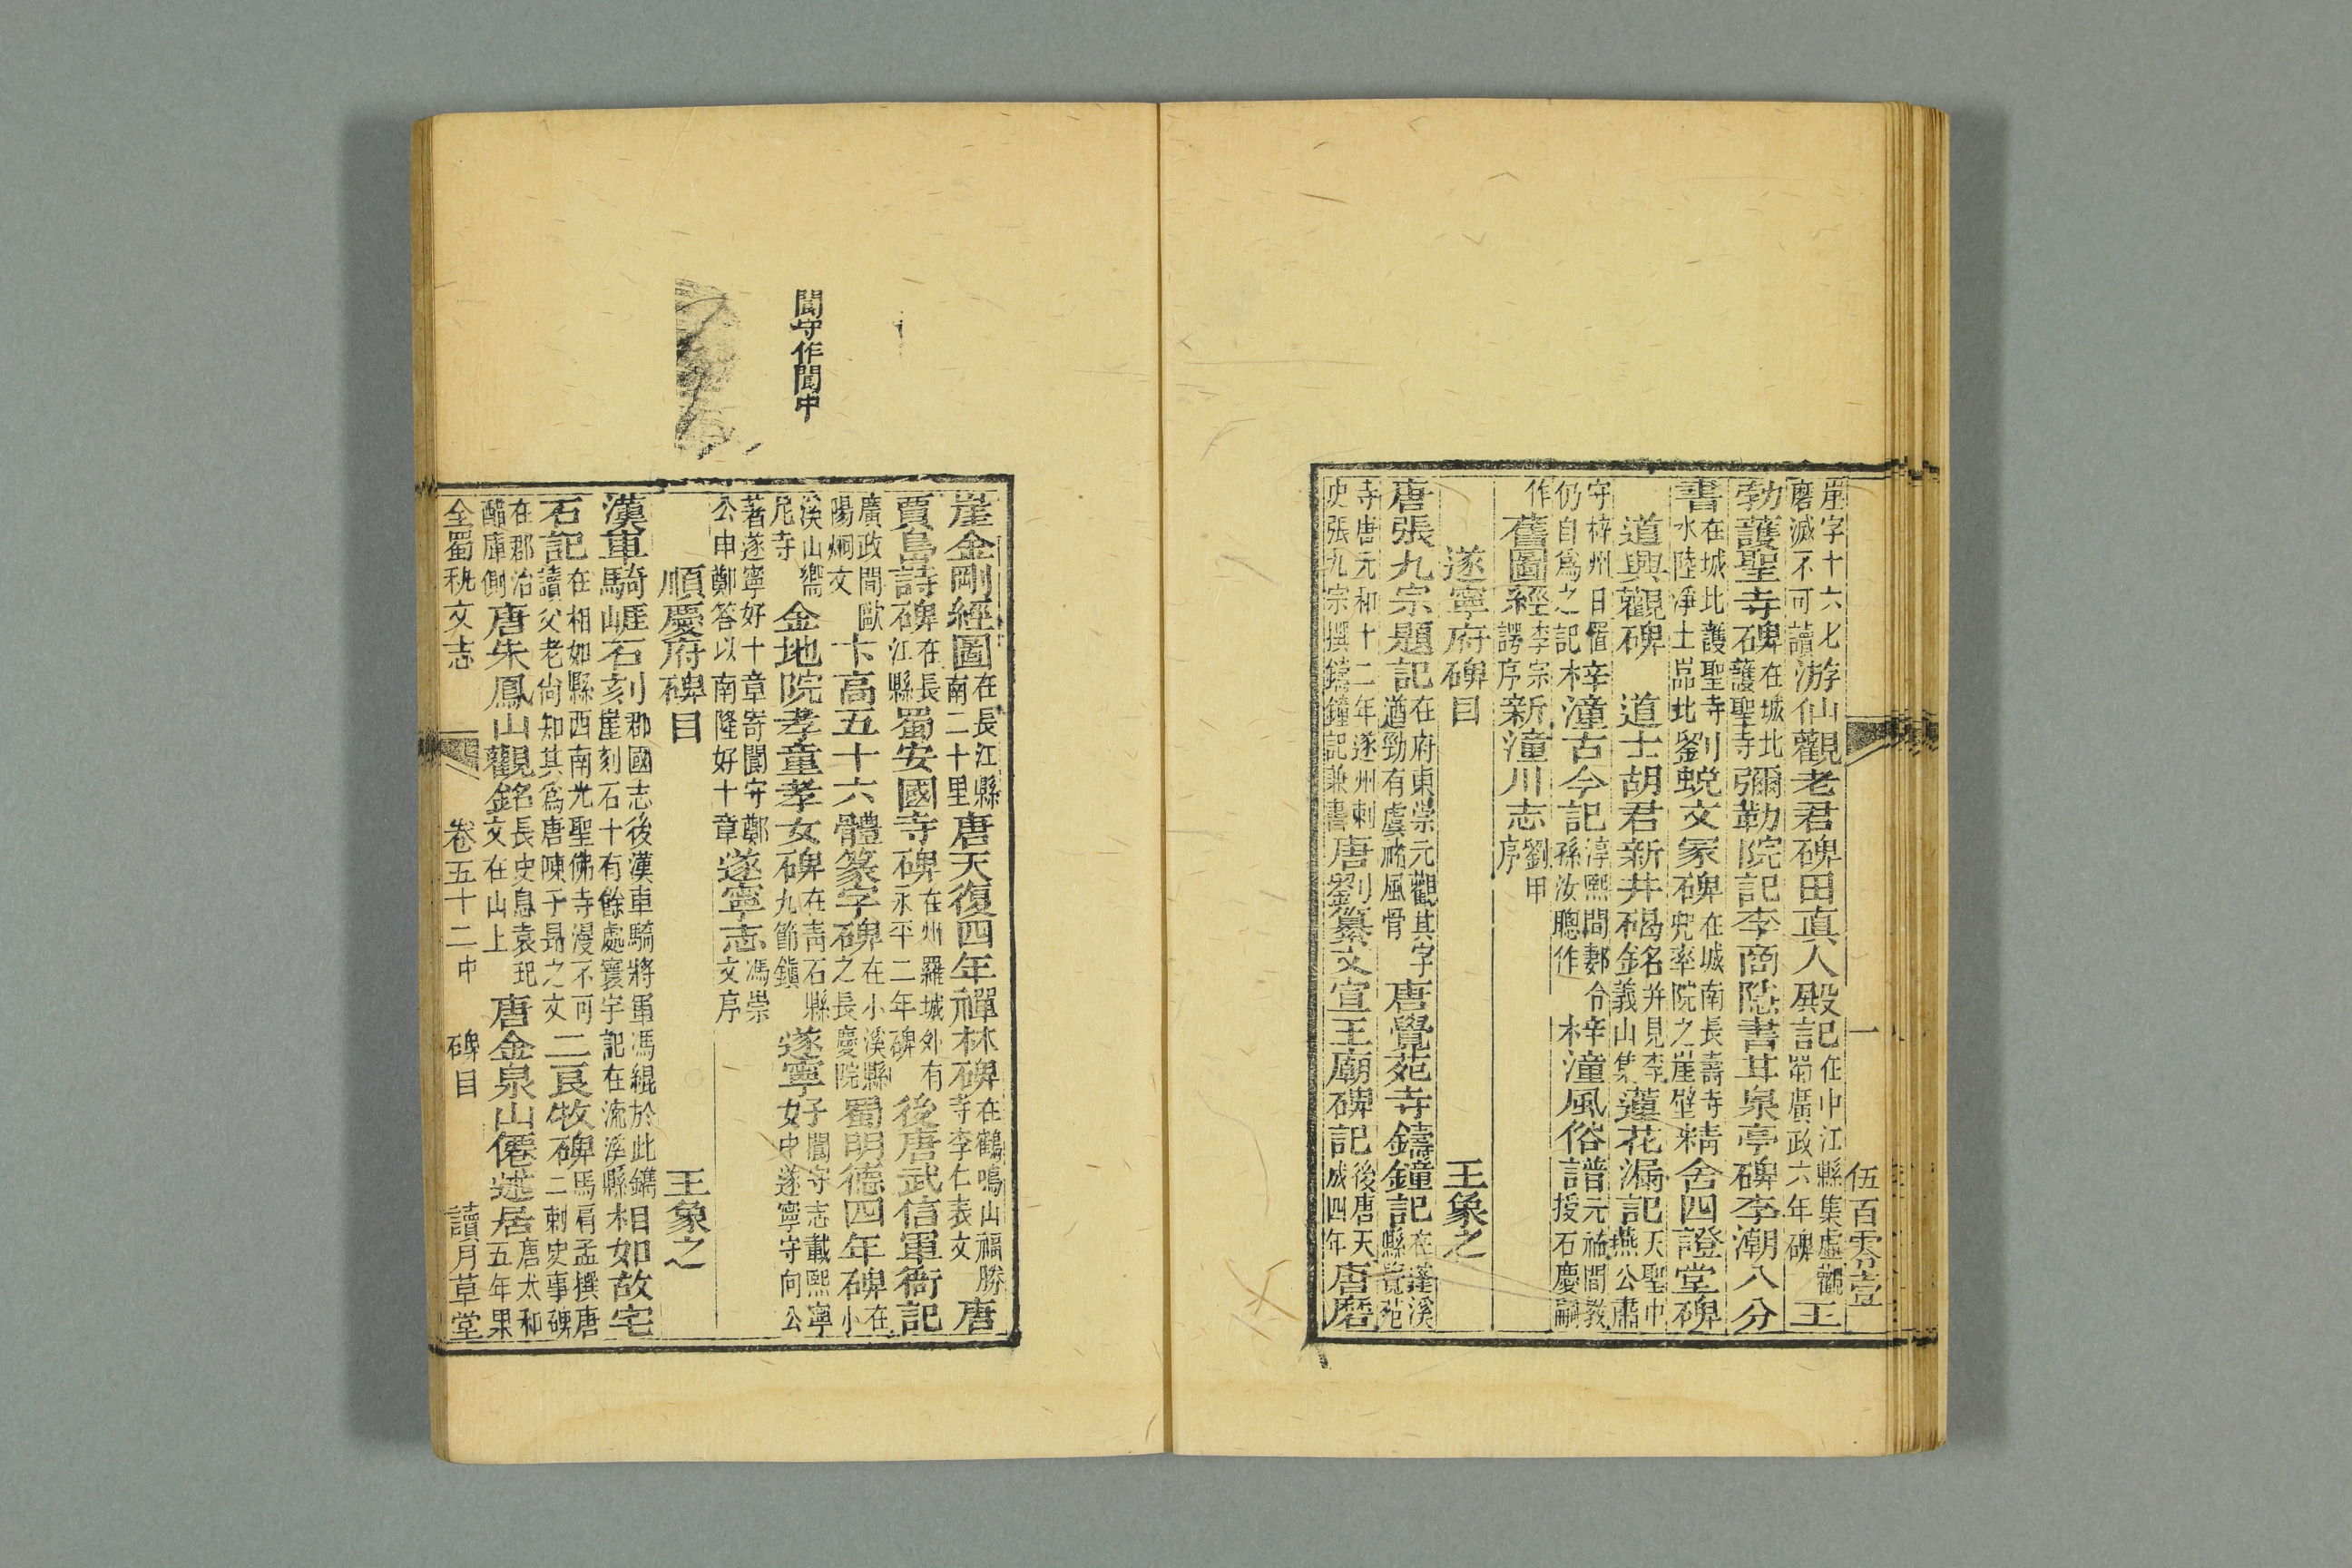 一 伍百零壹
崖字十六七磨滅不可讀游仙觀老君碑田真人殿記在中江縣集虛觀蜀廣政六年碑王
勃護聖寺碑在城北護聖寺彌勒院記李商隱書甘泉亭碑李潮八分
書在城北護聖寺水陸淨土岊北劉蛻文冢碑在城南長壽寺兜率院之崖壁精舍四證堂碑
道興觀碑 道士胡君新井碣銘并見李義山集蓮花漏記天聖中燕公肅
守梓州日置仍自爲之記梓潼古今記淳熙間郪令孫汝聰作梓潼風俗譜元祐間教授石慶嗣
作舊圖經李宗諤序新潼川志劉甲序
遂寧府碑目 王象之
唐張九宗題記在府東崇元觀其字遒勁有虞褚風骨唐覺苑寺鑄鐘記在蓬溪縣覺苑
寺唐元和十二年遂州刺史張九宗撰鑄鐘記兼書唐劉纂文宣王廟碑記後唐天成四年唐磨
崖金剛經圖在長江縣南二十里唐天復四年禪林碑在鶴鳴山福勝寺李仁表文唐
賈島詩碑在長江縣蜀安國寺碑在州羅城外有永平二年碑後唐武信軍衙記
廣政間歐陽炯文卞高五十六體篆字碑在小溪縣之長慶院蜀明德四年碑在小
閬守作閬中
溪山嚮凥寺金地院孝童孝女碑在靑石縣九節鎭遂寧好閬守志載熙寧中遂寧守向公
著遂寧好十章寄閬守鄭公申鄭答以南隆好十章遂寧志馮崇文序
順慶府碑目 王象之
漢車騎崕石刻郡國志後漢車騎將軍馮緄於此鐫崖刻石十有餘處寰宇記在流溪縣相如故宅
石記在相如縣西南光聖佛寺漫不可讀父老尙知其爲唐陳子昻之文二良牧碑馬肩孟撰唐二刺史事碑
在郡治醋庫側唐朱鳳山觀銘長史息袁玘文在山上唐金泉山僊遊居唐太和五年果
全蜀秇文志 卷五十二中 碑目 讀月草堂